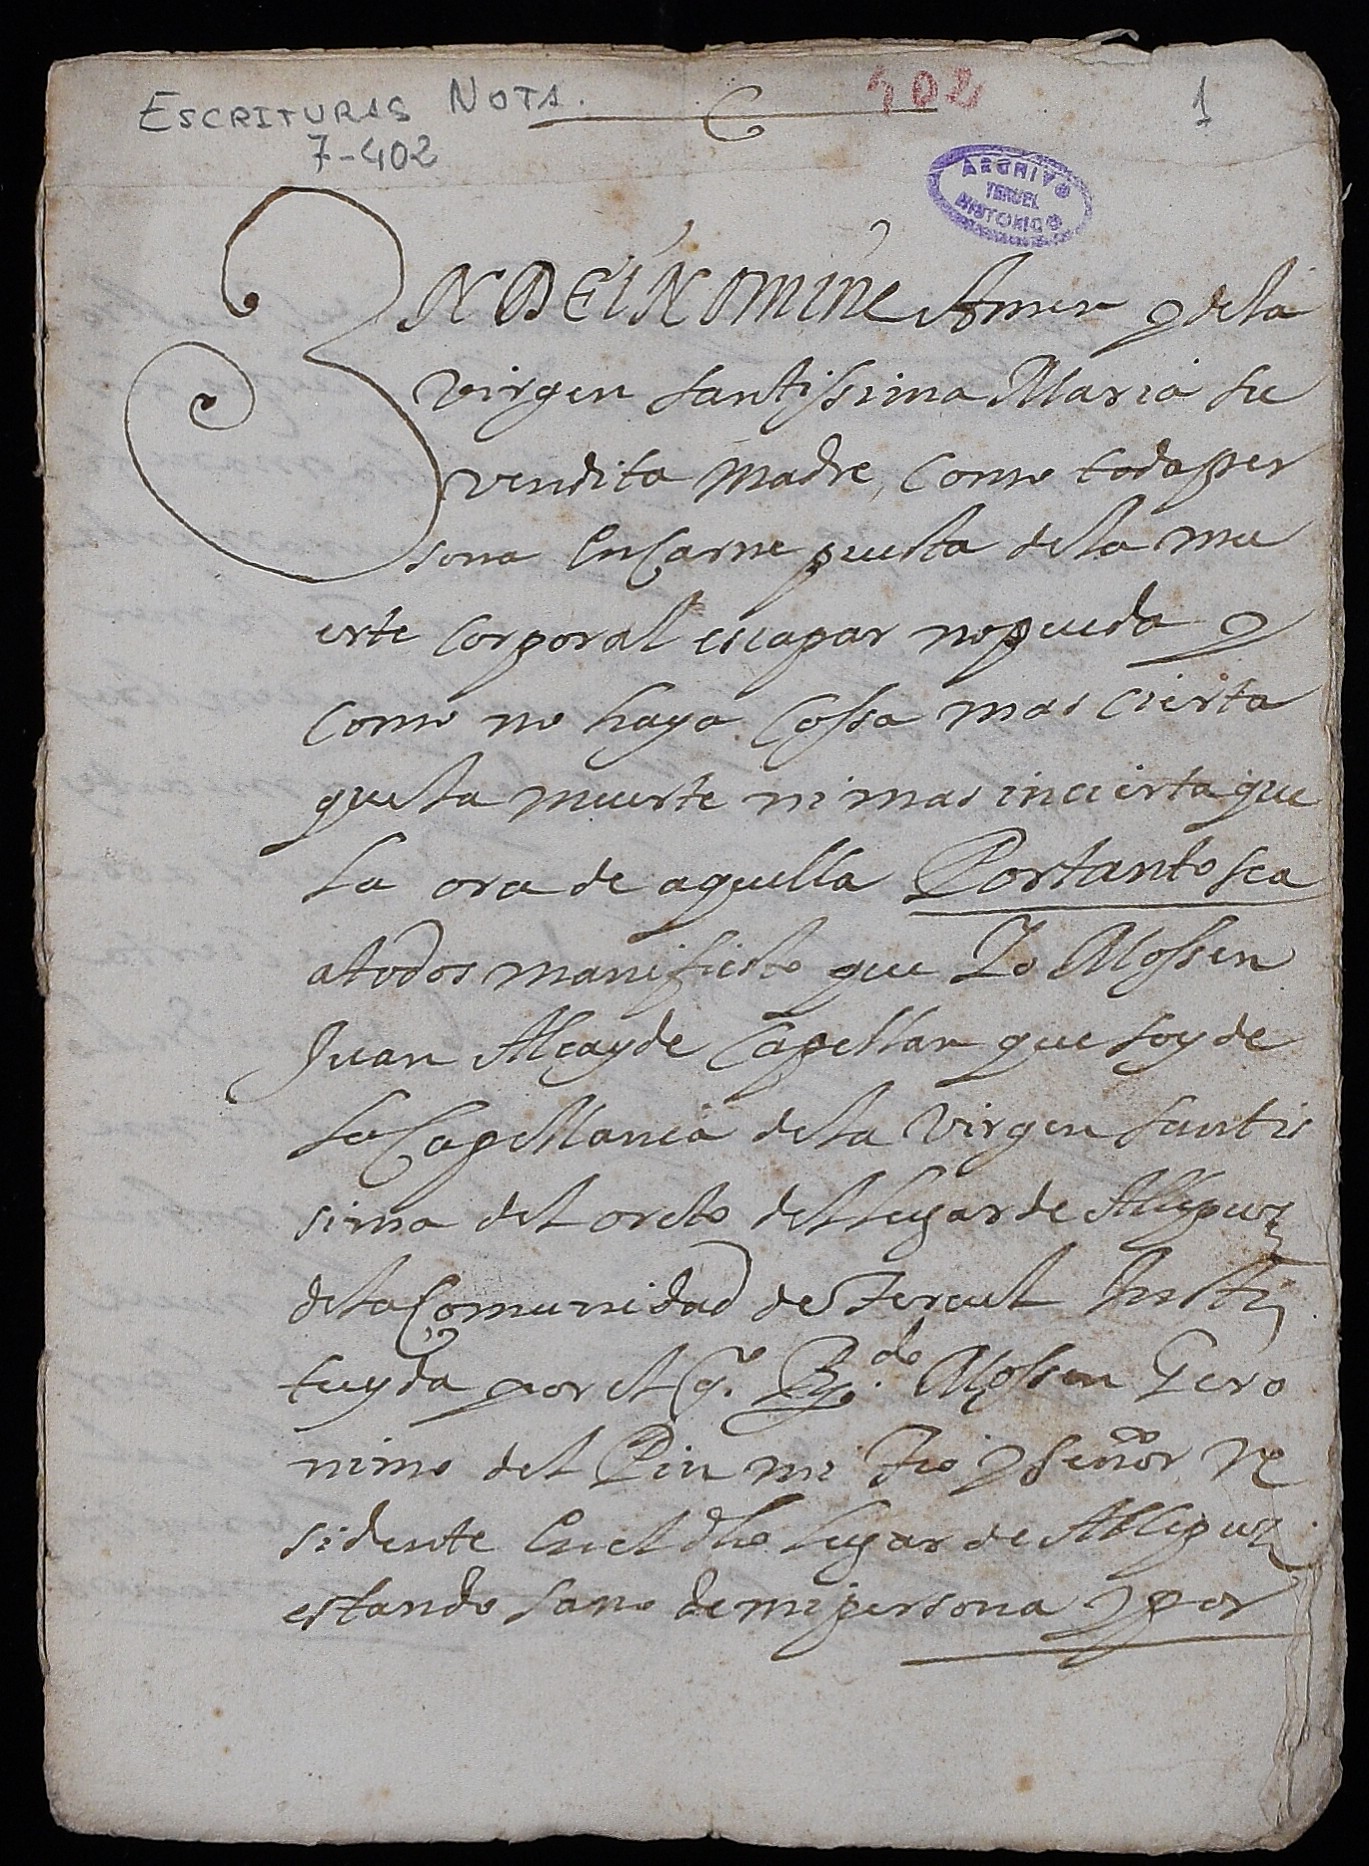 ESCRITURAS NOTA.
7-402
402
1
ARCHIVO
TERUEL
HISTORICO
IN DEI NOMINE Amen y de la
virgen santissima Maria su
vendita madre, Como toda per
sona en Carne puesta de la mu
erte corporal escapar no pueda y
como no haya Cossa mas cierta
que la muerte ni mas incierta que
la ora de aquella Portanto sea
a todos manifiesto que Yo Mossen
Juan Alcayde Capellan que soy de
la Capellania de la Virgen santis
sima del oreto del lugar de Allepuz
de la Comunidad de Teruel Insti
tuyda por el qº. Rdo. Mossen Gero
nimo del Pin mi tio y señor, re
sidente en el dho lugar de Allepuz
estando sano de mi persona y por